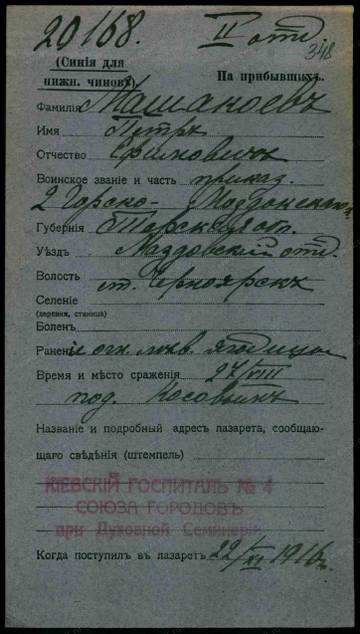 20168. II отд.
348
(Синія для
нижн. чиновъ)
На прибывшихъ.
Фамилія Машакоевъ
Имя Петръ
Отчество Ефимовичъ
Воинское званіе и часть приказ.
2 Горско-Моздокскаго п.
Губернія Терская обл.
Уѣздъ Моздовский отд.
Волость ст. Черноярск
Селеніе
(деревня, станица)
Боленъ
Раненіе огн. лѣв. ягодицы
Время и мѣсто сраженія 27/VIII
под. Косовымъ
Названіе и подробный адресъ лазарета, сообщаю-
щаго свѣдѣнія (штемпель)
КІЕВСКІЙ ГОСПИТАЛЬ № 4
СОЮЗА ГОРОДОВЪ
при Духовной Семинаріи
Когда поступилъ въ лазаретъ 22/XI 1916 г.